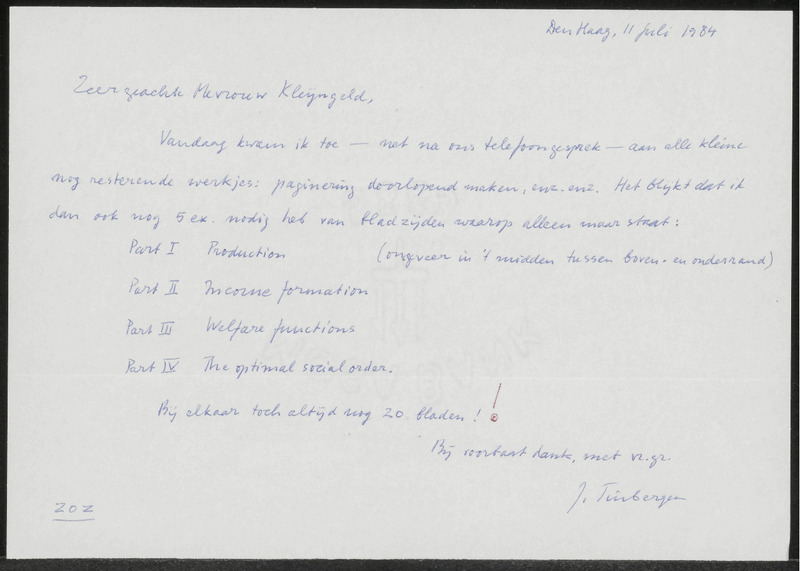 Den Haag, 11 juli 1984
Zeer geachte Mevrouw Kleijngeld,
Vandaag kwam ik toe — net na ons telefoongesprek — aan alle kleine
nog resterende werkjes: paginering doorlopend maken, enz. enz. Het blijkt dat ik
dan ook nog 5 ex. nodig heb van bladzijden waarop alleen maar staat:
Part I Production (ongeveer in 't midden tussen boven- en onderrand)
Part II Income formation
Part III Welfare functions
Part IV The optimal social order.
Bij elkaar toch altijd nog 20 bladen!
Bij voorbaat dank, met vr. gr.
J. Tinbergen
ZOZ